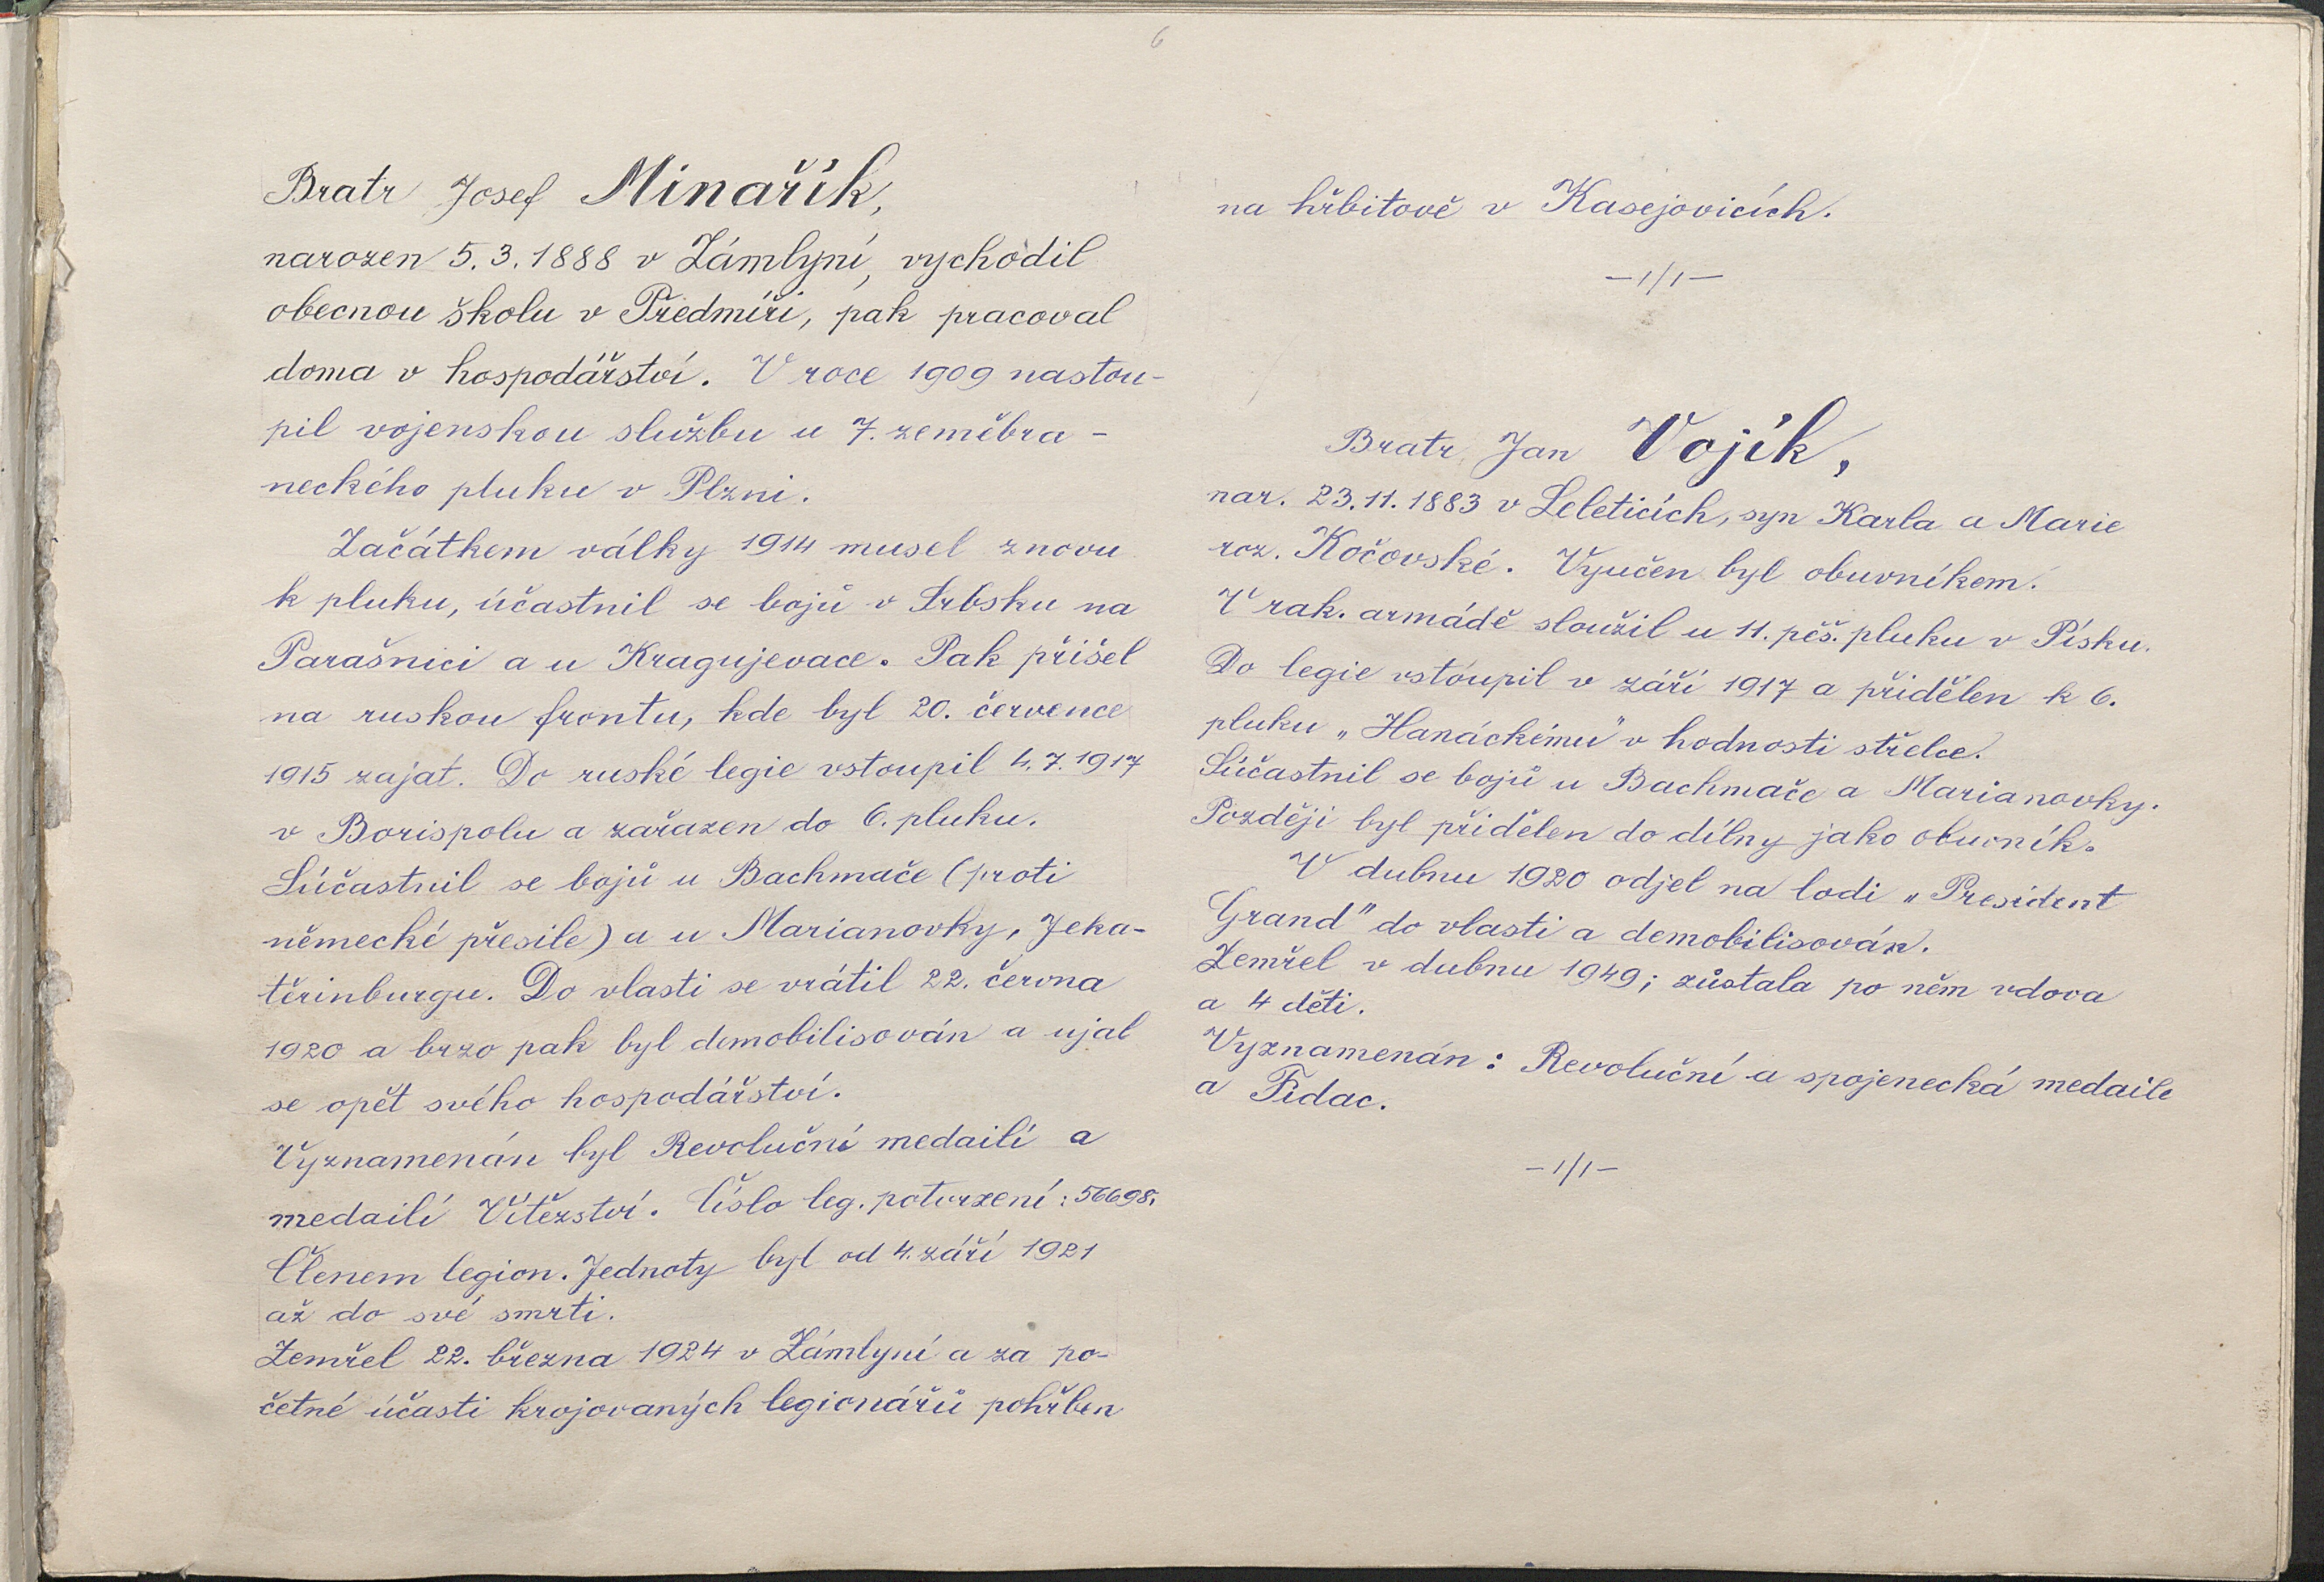 6
Bratr Josef Minařík,
narozen 5.3.1888 v Zámlyní, vychodil
obecnou školu v Předmíři, pak pracoval
doma v hospodářství. V roce 1909 nastou-
pil vojenskou službu u 7. zeměbra-
neckého pluku v Plzni.
Začátkem války 1914 musel znovu
k pluku, účastnil se bojů v Srbsku na
Parašnici a u Kragujevace. Pak přišel
na ruskou frontu, kde byl 20. července
1915 zajat. Do ruské legie vstoupil 4.7.1917
v Borispolu a zařazen do 6. pluku.
Súčastnil se bojů u Bachmače (proti
německé přesile) a u Marianovky, Jeka-
těrinburgu. Do vlasti se vrátil 22. června
1920 a brzo pak byl demobilisován a ujal
se opět svého hospodářství.
Vyznamenán byl Revoluční medailí a
medailí Vítězství. Číslo leg. potvrzení: 56698.
Členem legion. Jednoty byl od 4. září 1921
až do své smrti.
Zemřel 22. března 1924 v Zámlyní a za po-
četné účasti krojovaných legionářů pohřben
na hřbitově v Kasejovicích.
—1/1—
Bratr Jan Vojík,
nar. 23.11.1883 v Leleticích, syn Karla a Marie
roz. Kočovské. Vyučen byl obuvníkem.
V rak. armádě sloužil u 11. pěš. pluku v Písku.
Do legie vstoupil v září 1917 a přidělen k 6.
pluku „Hanáckému" v hodnosti střelce.
Súčastnil se bojů u Bachmače a Marianovky.
Později byl přidělen do dílny jako obuvník.
V dubnu 1920 odjel na lodi „President
Grand" do vlasti a demobilisován.
Zemřel v dubnu 1949; zůstala po něm vdova
a 4 děti.
Vyznamenán: Revoluční a spojenecká medaile
a Fidac.
—1/1—